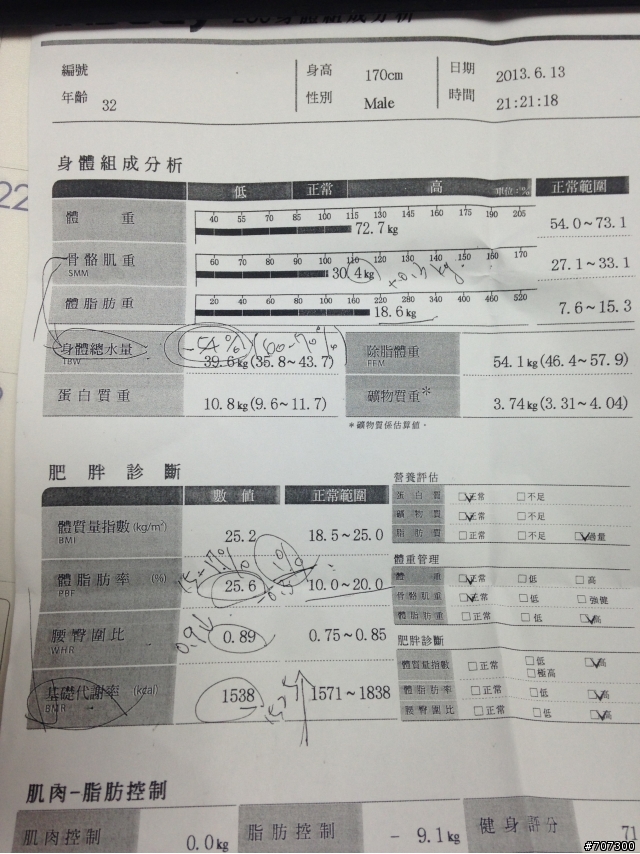 身體組成分析
編號 身高 170cm 日期 2013.6.13
年齡 32 性別 Male 時間 21:21:18
身體組成分析
低 正常 高 單位:% 正常範圍
體重 40 55 70 85 100 115 130 145 160 175 190 205
72.7kg 54.0~73.1
骨骼肌重 SMM 60 70 80 90 100 110 120 130 140 150 160 170
30.4kg 27.1~33.1
體脂肪重 20 40 60 80 100 160 220 280 340 400 460 520
18.6kg 7.6~15.3
54% (50-70%)
身體總水量 TBW 39.6kg(35.8~43.7) 除脂體重 FFM 54.1kg(46.4~57.9)
蛋白質重 10.8kg(9.6~11.7) 礦物質重* 3.74kg(3.31~4.04)
*礦物質係估算值。
肥胖診斷
數值 正常範圍
體質量指數(kg/m²) BMI 25.2 18.5~25.0
體脂肪率 (%) PBF 25.6 10.0~20.0
腰臀圍比 WHR 0.89 0.75~0.85
0.9↓
基礎代謝率 (kcal) BMR 1538 1571~1838
營養評估
蛋白質 ☑正常 □不足
礦物質 ☑正常 □不足
脂肪質 □正常 □不足 ☑過量
體重管理
體重 ☑正常 □低 □高
骨骼肌重 ☑正常 □低 □強健
體脂肪重 □正常 □低 ☑高
肥胖診斷
體質量指數 □正常 □低 ☑高
□極高
體脂肪率 □正常 □低 ☑高
腰臀圍比 □正常 □低 ☑高
肌肉-脂肪控制
肌肉控制 0.0kg 脂肪控制 - 9.1kg 健身評分 71
#707300